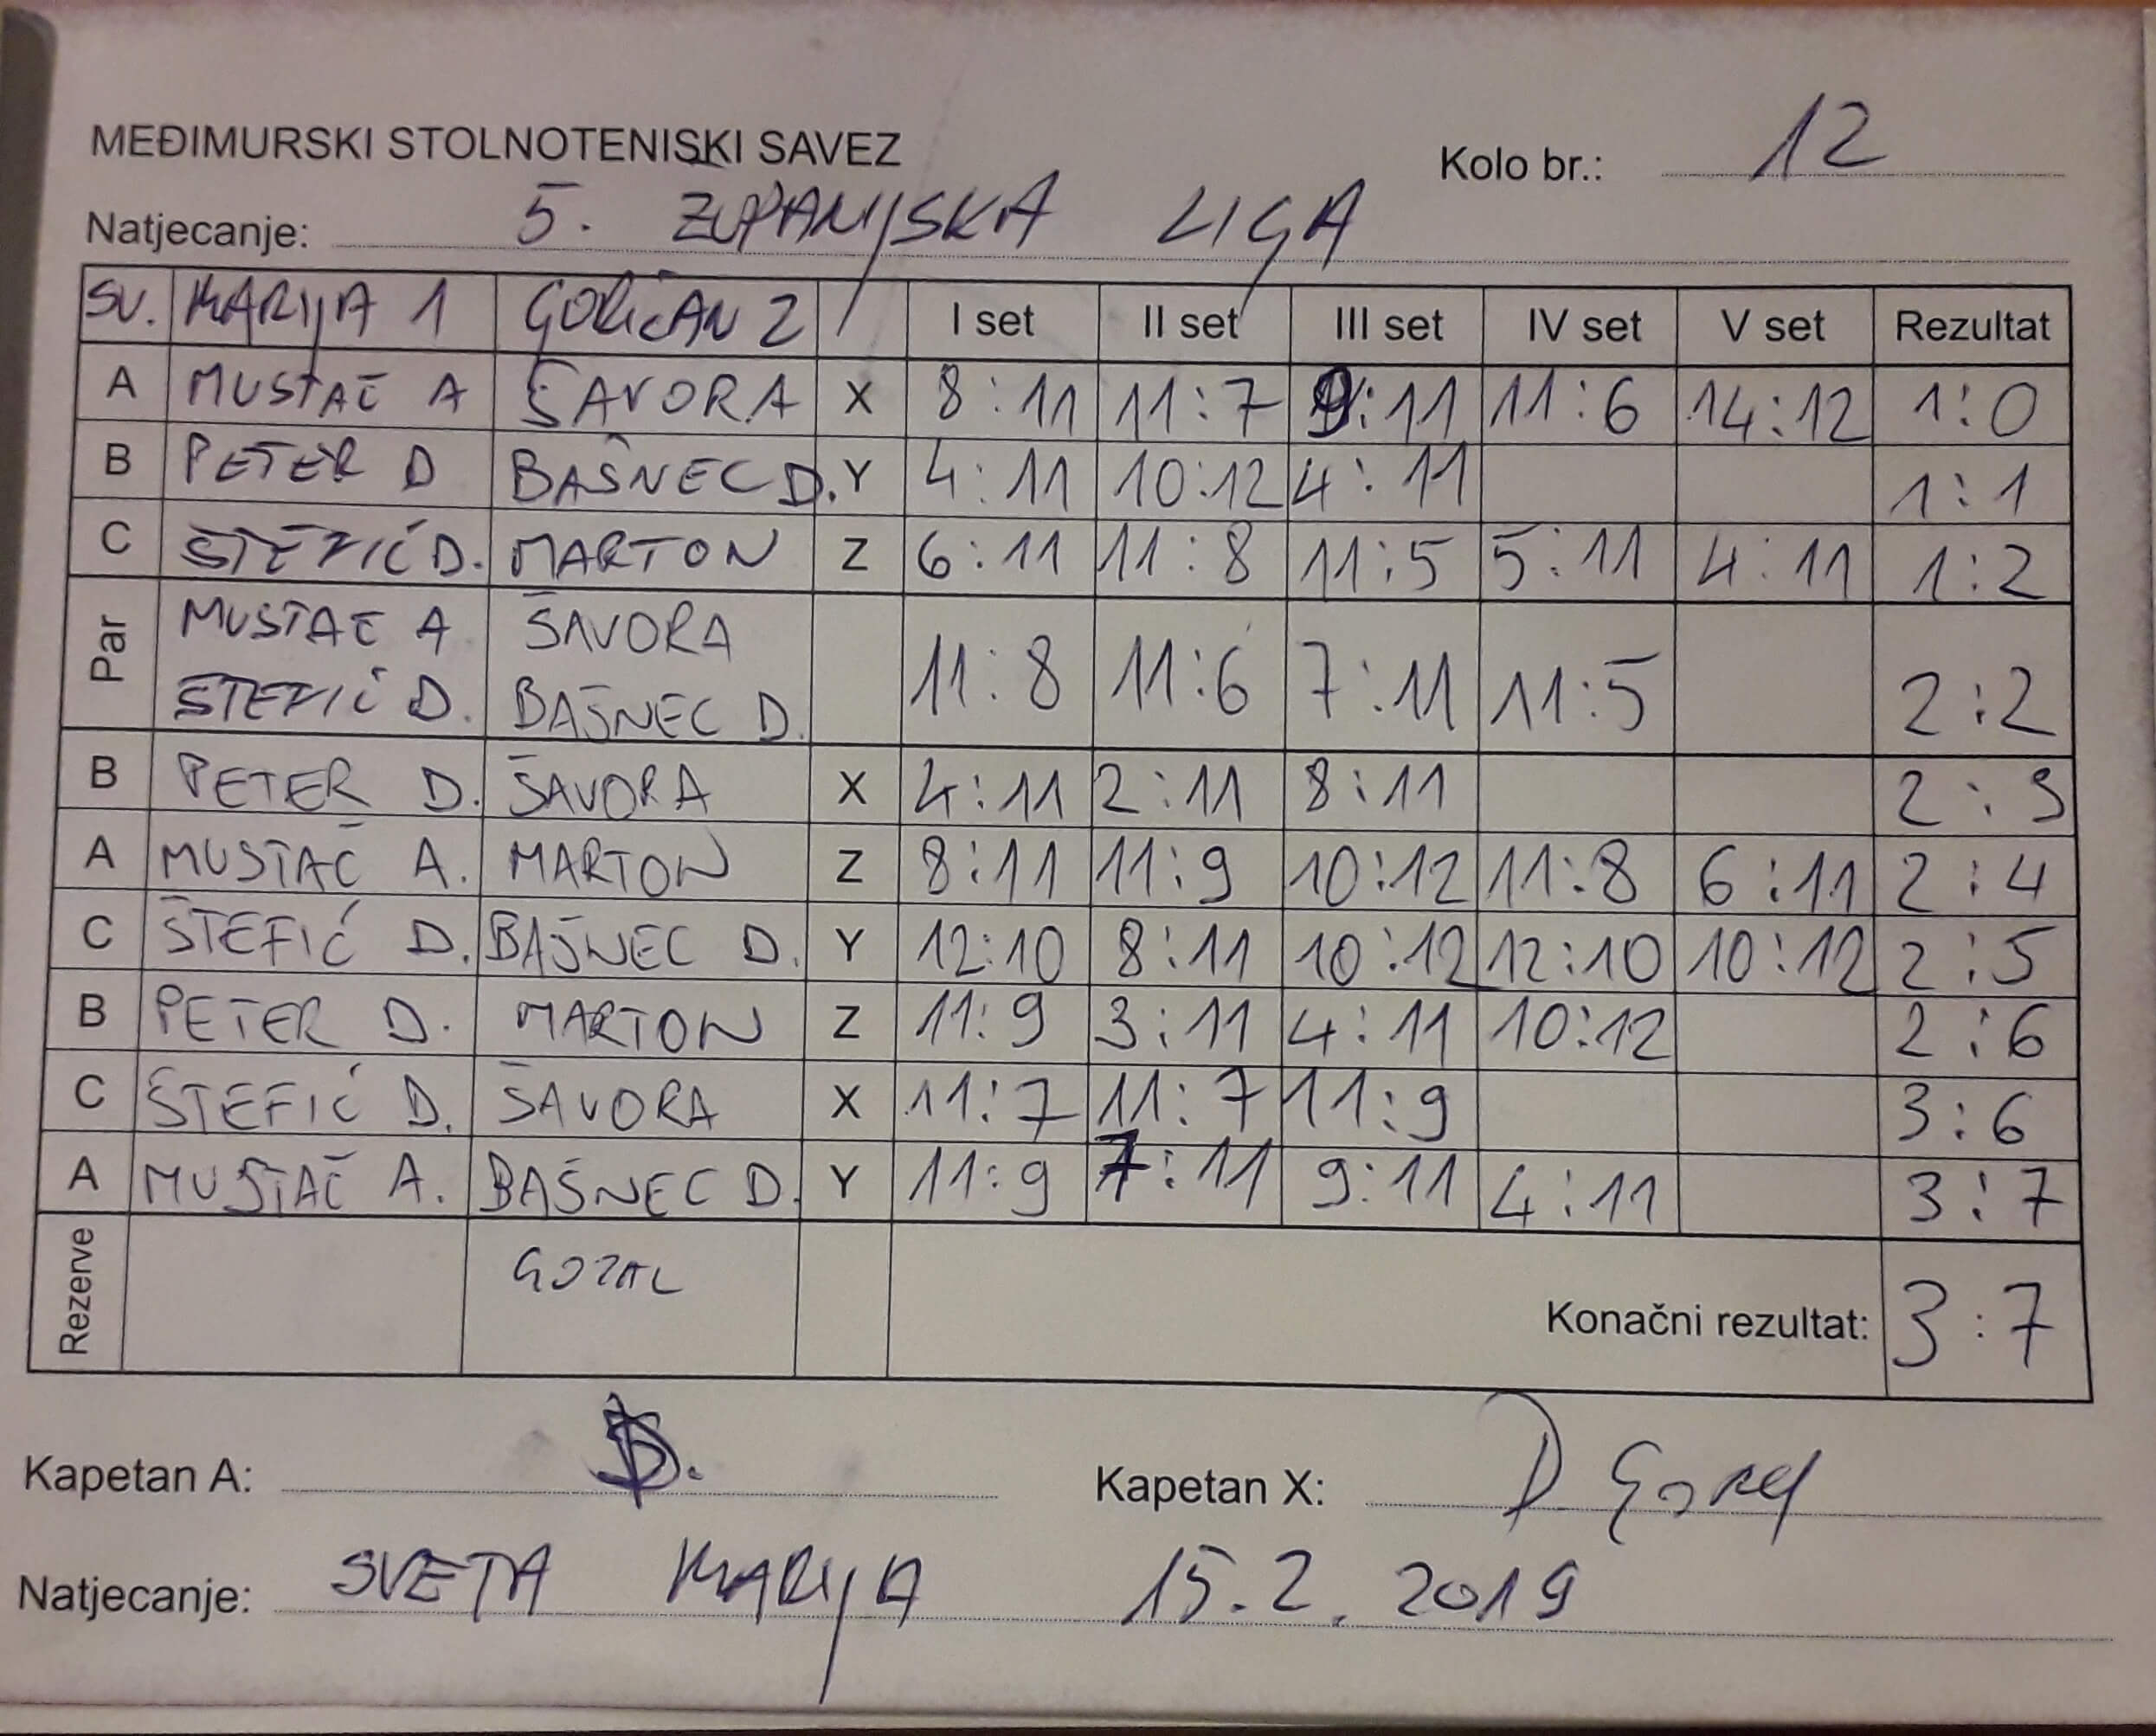 MEĐIMURSKI STOLNOTENISKI SAVEZ Kolo br.: 12
Natjecanje: 5. ŽUPANIJSKA LIGA
SV. MARIJA 1 GORIČAN 2 I set II set III set IV set V set Rezultat
A MUSTAČ A ŠAVORA X 8:11 11:7 9:11 11:6 14:12 1:0
B PETER D BAŠNEC D. Y 4:11 10:12 4:11 1:1
C ŠTEFIĆ D. MARTON Z 6:11 11:8 11:5 5:11 4:11 1:2
Par MUSTAČ A ŠAVORA
ŠTEFIĆ D. BAŠNEC D. 11:8 11:6 7:11 11:5 2:2
B PETER D. ŠAVORA X 4:11 2:11 8:11 2:3
A MUSTAČ A. MARTON Z 8:11 11:9 10:12 11:8 6:11 2:4
C ŠTEFIĆ D. BAŠNEC D. Y 12:10 8:11 10:12 12:10 10:12 2:5
B PETER D. MARTON Z 11:9 3:11 4:11 10:12 2:6
C ŠTEFIĆ D. ŠAVORA X 11:7 11:7 11:9 3:6
A MUSTAČ A. BAŠNEC D. Y 11:9 7:11 9:11 4:11 3:7
Rezerve
Konačni rezultat: 3:7
Kapetan A: Kapetan X:
Natjecanje: SVETA MARIJA 15.2.2019